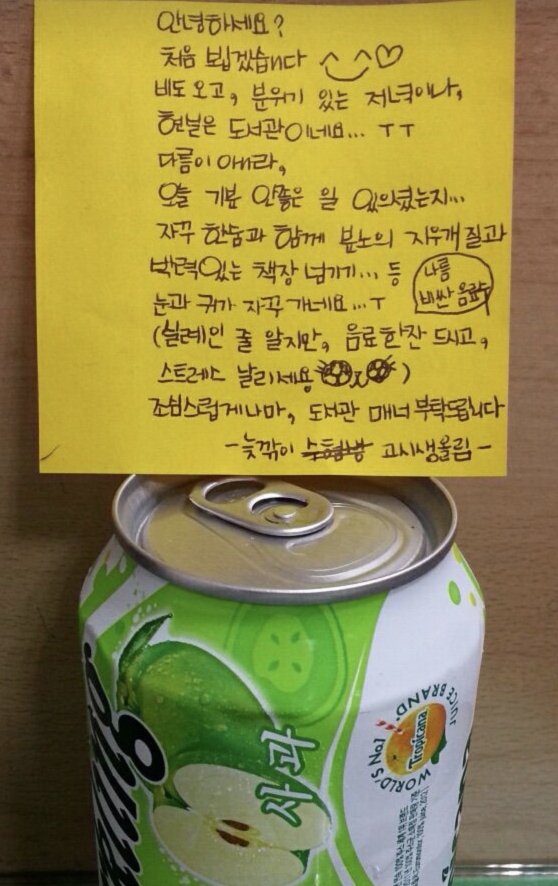 안녕하세요?
처음 뵙겠습니다 ^_^♡
비도 오고, 분위기 있는 저녁이나,
현실은 도서관이네요... ㅜㅜ
다름이 아니라,
오늘 기분 안좋은 일 있으셨는지...
자꾸 한숨과 함께 분노의 지우개질과
박력있는 책장 넘기기... 등
눈과 귀가 자꾸 가네요...ㅜ
나름
비싼 음료수
(실례인 줄 알지만, 음료한잔 드시고,
스트레스 날리세용)
조심스럽게나마, 도서관 매너 부탁드립니다
-늦깎이 고시생올림-
사과
WORLD'S No1
JUICE BRAND.
Tropicana